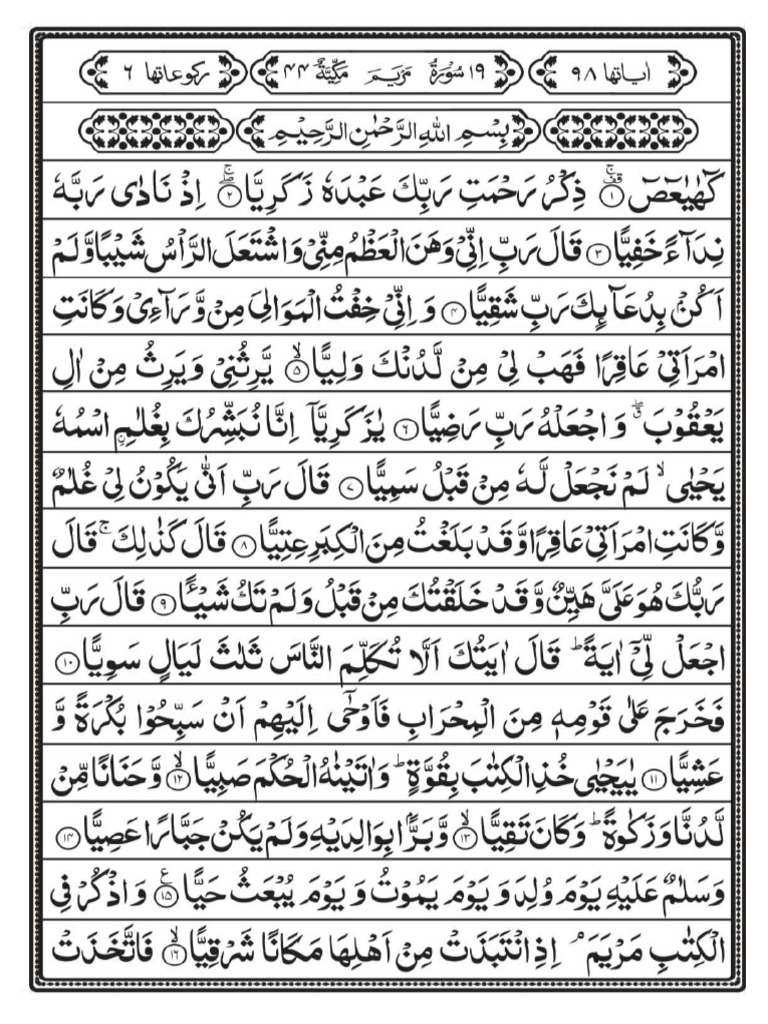 اٰیاتها ۹۸ ۱۹ سُوْرَةُ مَرْیَمَ مَكِّیَّةٌ ۴۴ ركوعاتها ۶
بِسْمِ اللهِ الرَّحْمٰنِ الرَّحِیْمِ
كٓهٰیٰعٓصٓ ۚ۱ ذِكْرُ رَحْمَتِ رَبِّكَ عَبْدَهٗ زَكَرِیَّا ۖۚ۲ اِذْ نَادٰی رَبَّهٗ
نِدَآءً خَفِیًّا ۳ قَالَ رَبِّ اِنِّیْ وَهَنَ الْعَظْمُ مِنِّیْ وَاشْتَعَلَ الرَّاْسُ شَیْبًا وَّلَمْ
اَكُنْۢ بِدُعَآئِكَ رَبِّ شَقِیًّا ۴ وَاِنِّیْ خِفْتُ الْمَوَالِیَ مِنْ وَّرَآءِیْ وَكَانَتِ
امْرَاَتِیْ عَاقِرًا فَهَبْ لِیْ مِنْ لَّدُنْكَ وَلِیًّا ۙ۵ یَّرِثُنِیْ وَیَرِثُ مِنْ اٰلِ
یَعْقُوْبَ ۖۗ وَاجْعَلْهُ رَبِّ رَضِیًّا ۶ یٰزَكَرِیَّاۤ اِنَّا نُبَشِّرُكَ بِغُلٰمِ ۨاسْمُهٗ
یَحْیٰی ۙ لَمْ نَجْعَلْ لَّهٗ مِنْ قَبْلُ سَمِیًّا ۷ قَالَ رَبِّ اَنّٰی یَكُوْنُ لِیْ غُلٰمٌ
وَّكَانَتِ امْرَاَتِیْ عَاقِرًا وَّقَدْ بَلَغْتُ مِنَ الْكِبَرِ عِتِیًّا ۸ قَالَ كَذٰلِكَ ۚ قَالَ
رَبُّكَ هُوَ عَلَیَّ هَیِّنٌ وَّقَدْ خَلَقْتُكَ مِنْ قَبْلُ وَلَمْ تَكُ شَیْـًٔا ۹ قَالَ رَبِّ
اجْعَلْ لِّیْۤ اٰیَةً ؕ قَالَ اٰیَتُكَ اَلَّا تُكَلِّمَ النَّاسَ ثَلٰثَ لَیَالٍ سَوِیًّا ۱۰
فَخَرَجَ عَلٰی قَوْمِهٖ مِنَ الْمِحْرَابِ فَاَوْحٰۤی اِلَیْهِمْ اَنْ سَبِّحُوْا بُكْرَةً وَّ
عَشِیًّا ۱۱ یٰیَحْیٰی خُذِ الْكِتٰبَ بِقُوَّةٍ ؕ وَاٰتَیْنٰهُ الْحُكْمَ صَبِیًّا ۙ۱۲ وَّحَنَانًا مِّنْ
لَّدُنَّا وَزَكٰوةً ؕ وَكَانَ تَقِیًّا ۙ۱۳ وَّبَرًّۢا بِوَالِدَیْهِ وَلَمْ یَكُنْ جَبَّارًا عَصِیًّا ۱۴
وَسَلٰمٌ عَلَیْهِ یَوْمَ وُلِدَ وَیَوْمَ یَمُوْتُ وَیَوْمَ یُبْعَثُ حَیًّا ۱۵ ع وَاذْكُرْ فِی
الْكِتٰبِ مَرْیَمَ ۘ اِذِ انْتَبَذَتْ مِنْ اَهْلِهَا مَكَانًا شَرْقِیًّا ۙ۱۶ فَاتَّخَذَتْ